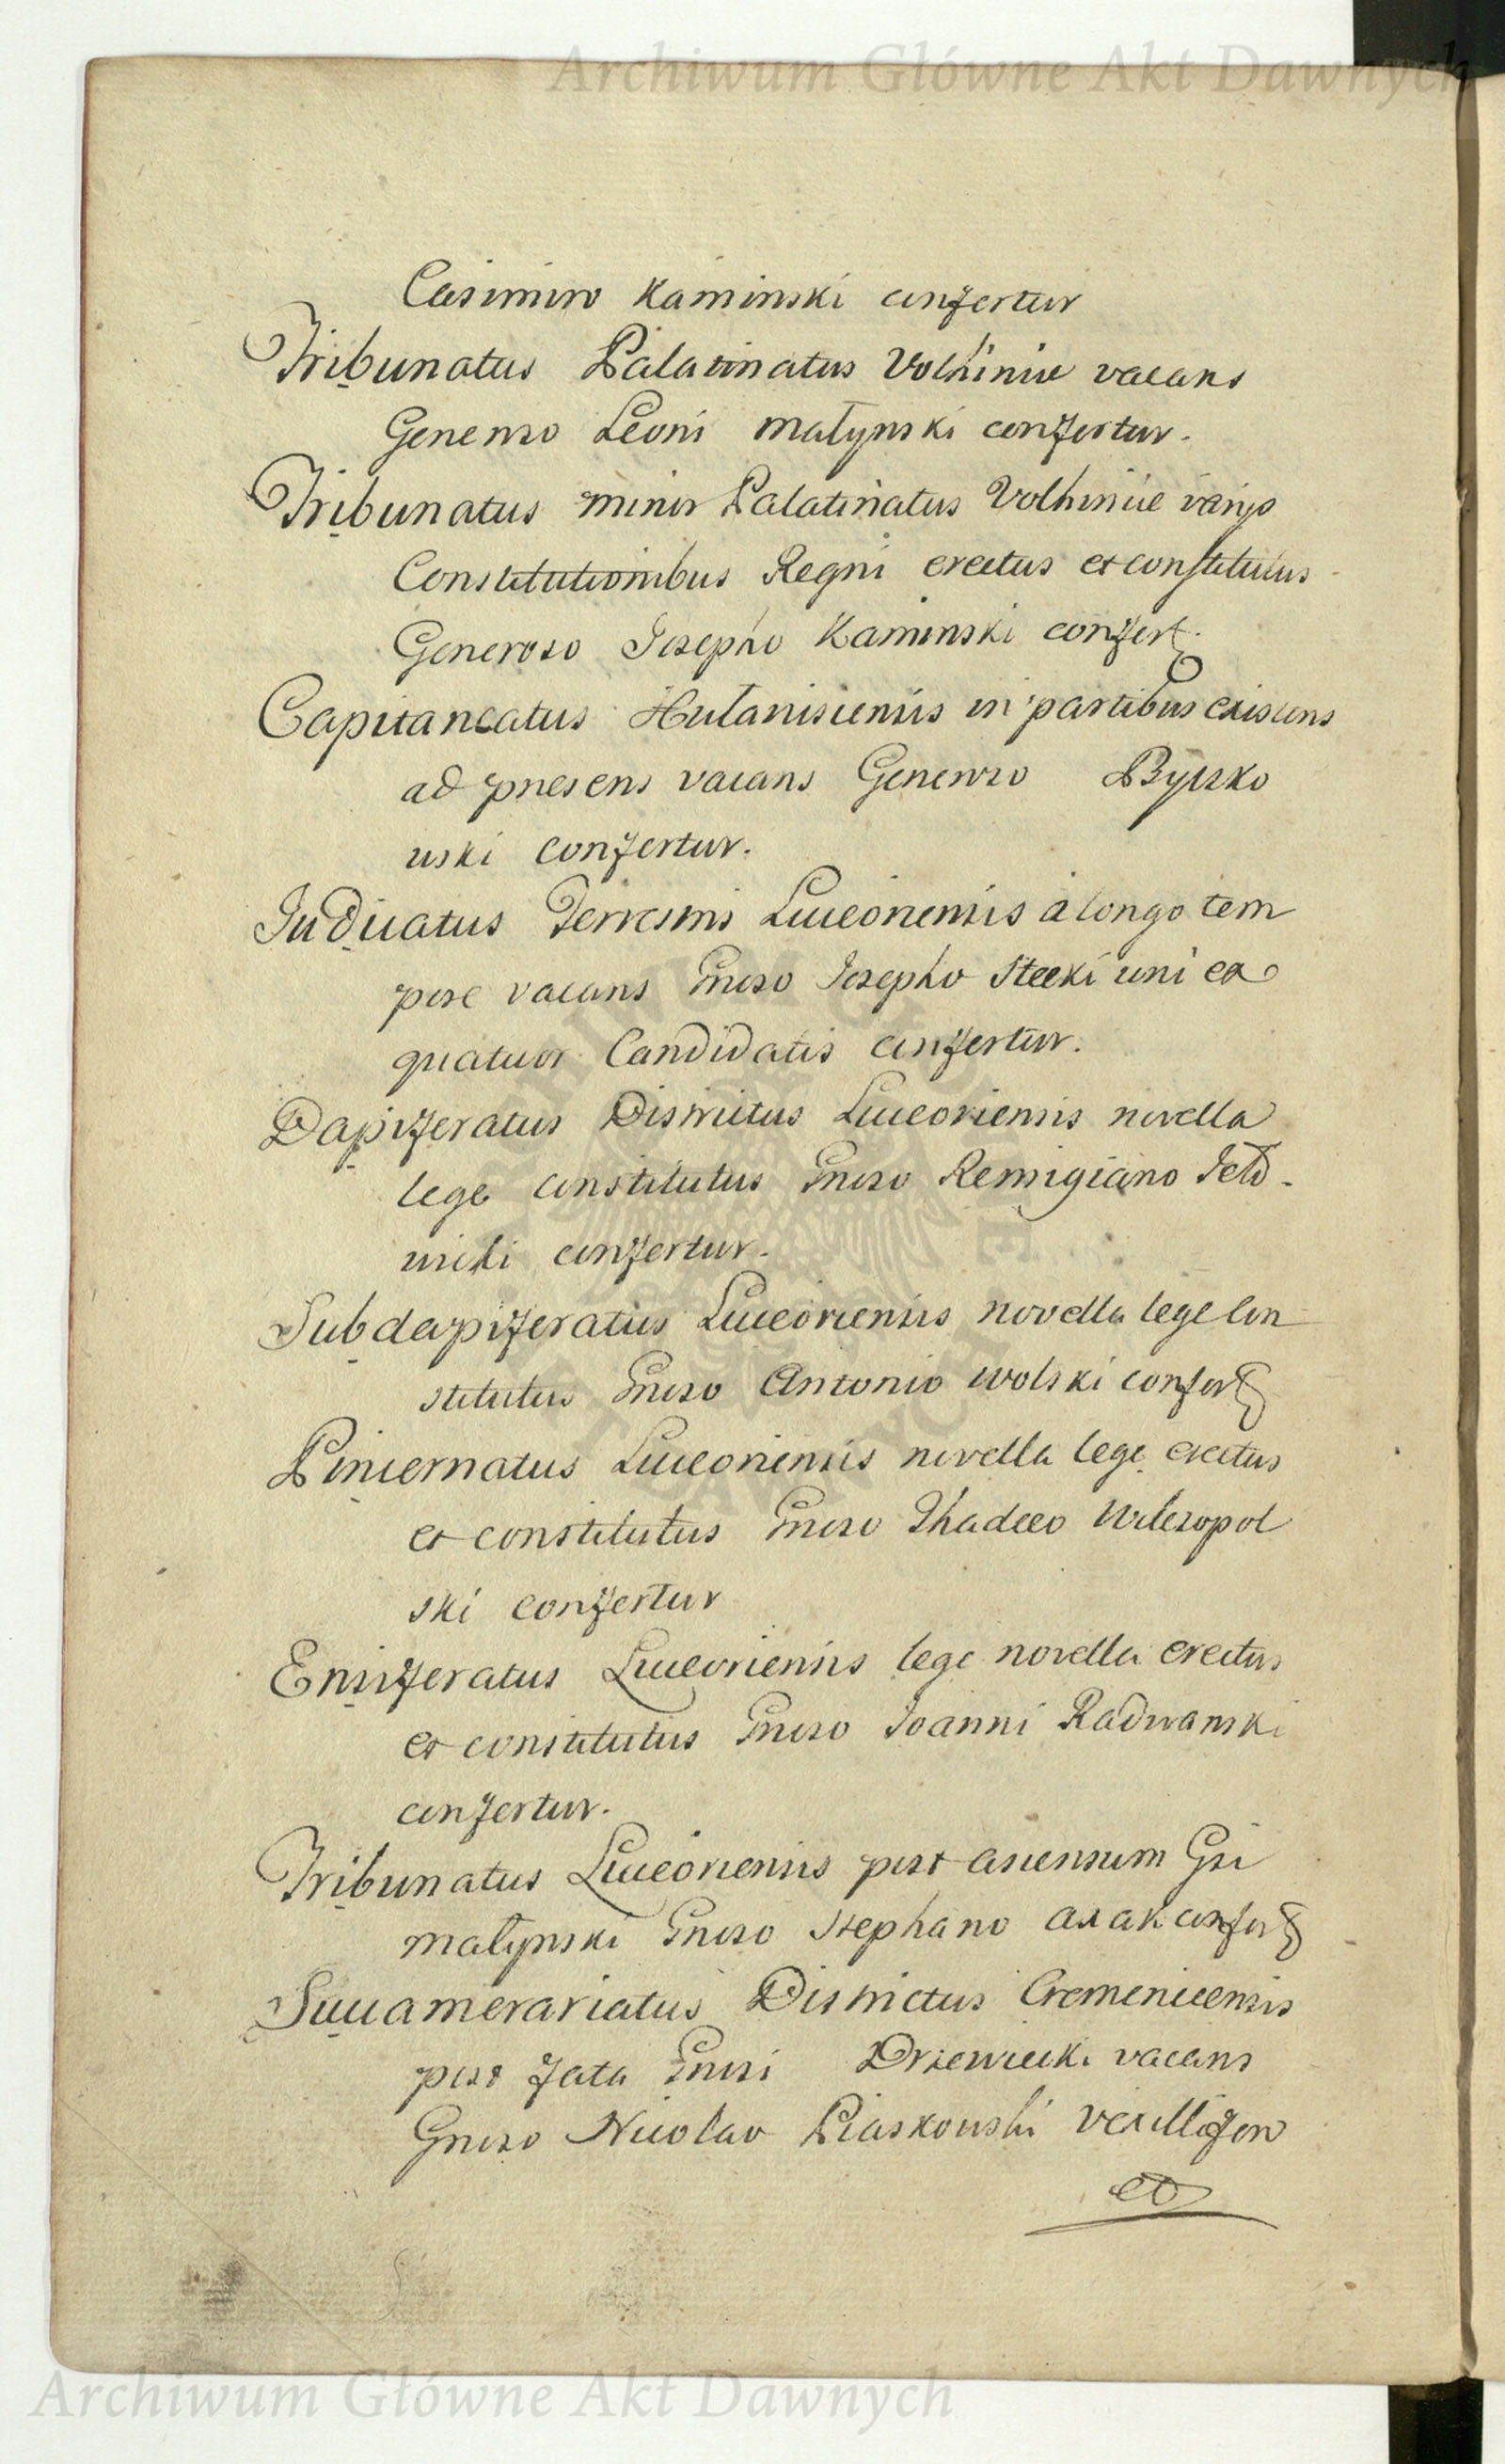 Archiwum Główne Akt Dawnych
Casimiro Kaminski confertur
Tribunatus Palatinatus Volhiniæ vacans
Generoso Leoni Małynski confertur.
Tribunatus minor Palatinatus Volhiniæ varijs
Constitutionibus Regni erectus et constitutus
Generoso Josepho Kaminski confert.
Capitaneatus Hulanisiensis in partibus existens
ad presens vacans Generoso Byszko
wski confertur.
Judicatus Terrestris Luceoriensis a longo tem
pore vacans Gnroso Josepho Stecki uni ex
quatuor Candidatis confertur.
Dapiferatus Districtus Luceoriensis novella
lege constitutus Gnroso Remigiano
confertur.
Subdapiferatus Luceoriensis novella lege con
stitutus Gnroso Antonio Wolski confert
Pincernatus Luceoriensis novella lege erectus
et constitutus Gnroso Thadeeo Wilczopol
ski confertur
Ensiferatus Luceoriensis lege novella erectus
et constitutus Gnroso Joanni Radwanski
confertur.
Tribunatus Luceoriensis post ascensum Gsi
Małynski Gnroso Stephano Axak confert
Succamerariatus Districtus Cremenecensis
post fata Gnrosi Drzewiecki vacans
Gnroso Nicolao Piaskowski Vexillifero
Archiwum Główne Akt Dawnych